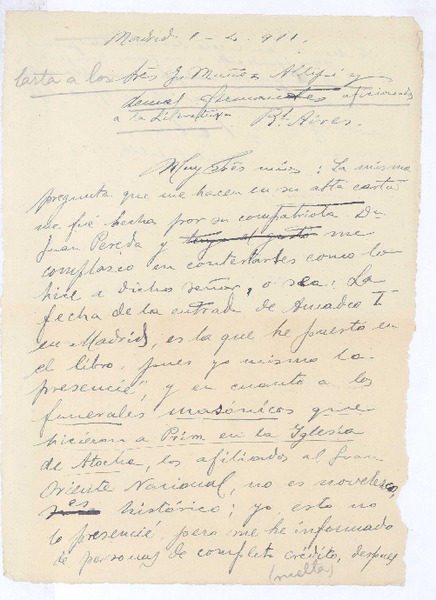 Madrid 1-4-911.
Carta a los Srēs J. Muñoz y
demás firmantes aficionados
a la Literatura Bs Aires.
Muy Srēs míos: La misma
pregunta que me hacen en su atta carta
me fué hecha por su compatriota Dn
Juan Pereda y tengo el gusto me
complasco en contestarles como lo
hice a dicho señor, o sea: La
fecha de la entrada de Amadeo I
en Madrid, es la que he puesto en
el libro, pues yo mismo la
presencié, y en cuanto a los
funerales masónicos que
hicieron a Prim en la Iglesia
de Atocha, los afiliados al Gran
Oriente Nacional, no es novelesco,
es histórico; yo esto no
lo presencié pero me he informado
de personas de completo crédito, despues
(vuelta)